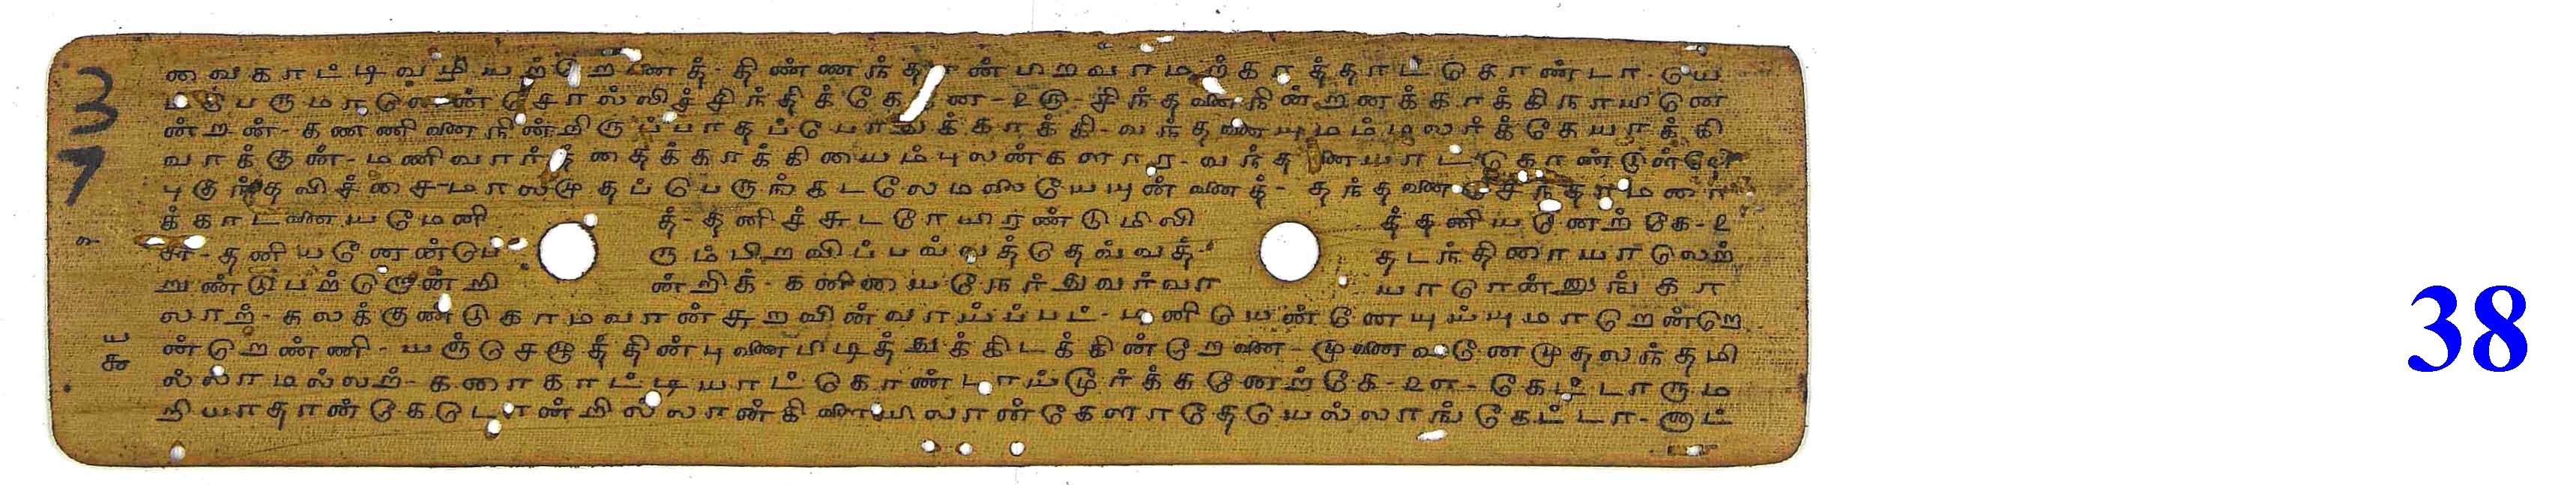 வைகாட்டிவழியற்றேனைத்- திண்ணந்தான்பிறவாமற்காத்தாட்கொண்டா-யெய்
ம்பெருமானென்சொல்லிச்சிந்திக்கேனே-௨௫-சிந்தனைநின்றனக்காக்கிநாயினே
ன்றன்-கண்ணிணைநின்றிருப்பாதப்போதுக்காக்கி-வந்தனையுமம்மலர்க்கேயாக்கி
வாக்குன்-மணிவார்த்தைக்காக்கியைம்புலன்களார-வந்தனையாட்கொண்டுள்ளே
புகுந்தவிச்சை-மாலமுதப்பெருங்கடலேமலையேயுன்னைத்- தந்தனைசெந்தாமரை
க்காடனையமேனி த்-தனிச்சுடரேயிரண்டுமிலி த்தனியனேற்கே-௨
௬-தனியனேன்பெ ரும்பிறவிப்பவ்வத்தெவ்வத்- தடந்திரையாலெற்
றுண்டுபற்றொன்றி ன்றிக்-கனியைநேர்துவர்வா யாரென்னுங்கா
லாற்-கலக்குண்டுகாமவான்சுறவின்வாய்ப்பட்-டினியென்னேயுய்யுமாறென்றெ
ன்றெண்ணி-யஞ்செழுத்தின்புணைபிடித்துக்கிடக்கின்றேனை-முனைவனேமுதலந்தமி
ல்லாமல்லற்-கரைகாட்டியாட்கொண்டாய்மூர்க்கனேற்கே-௨௭-கேட்டாரும
றியாதான்கேடொன்றில்லான்கிளையிலான்கேளாதேயெல்லாங்கேட்டா-னாட்
37
௰௬
38